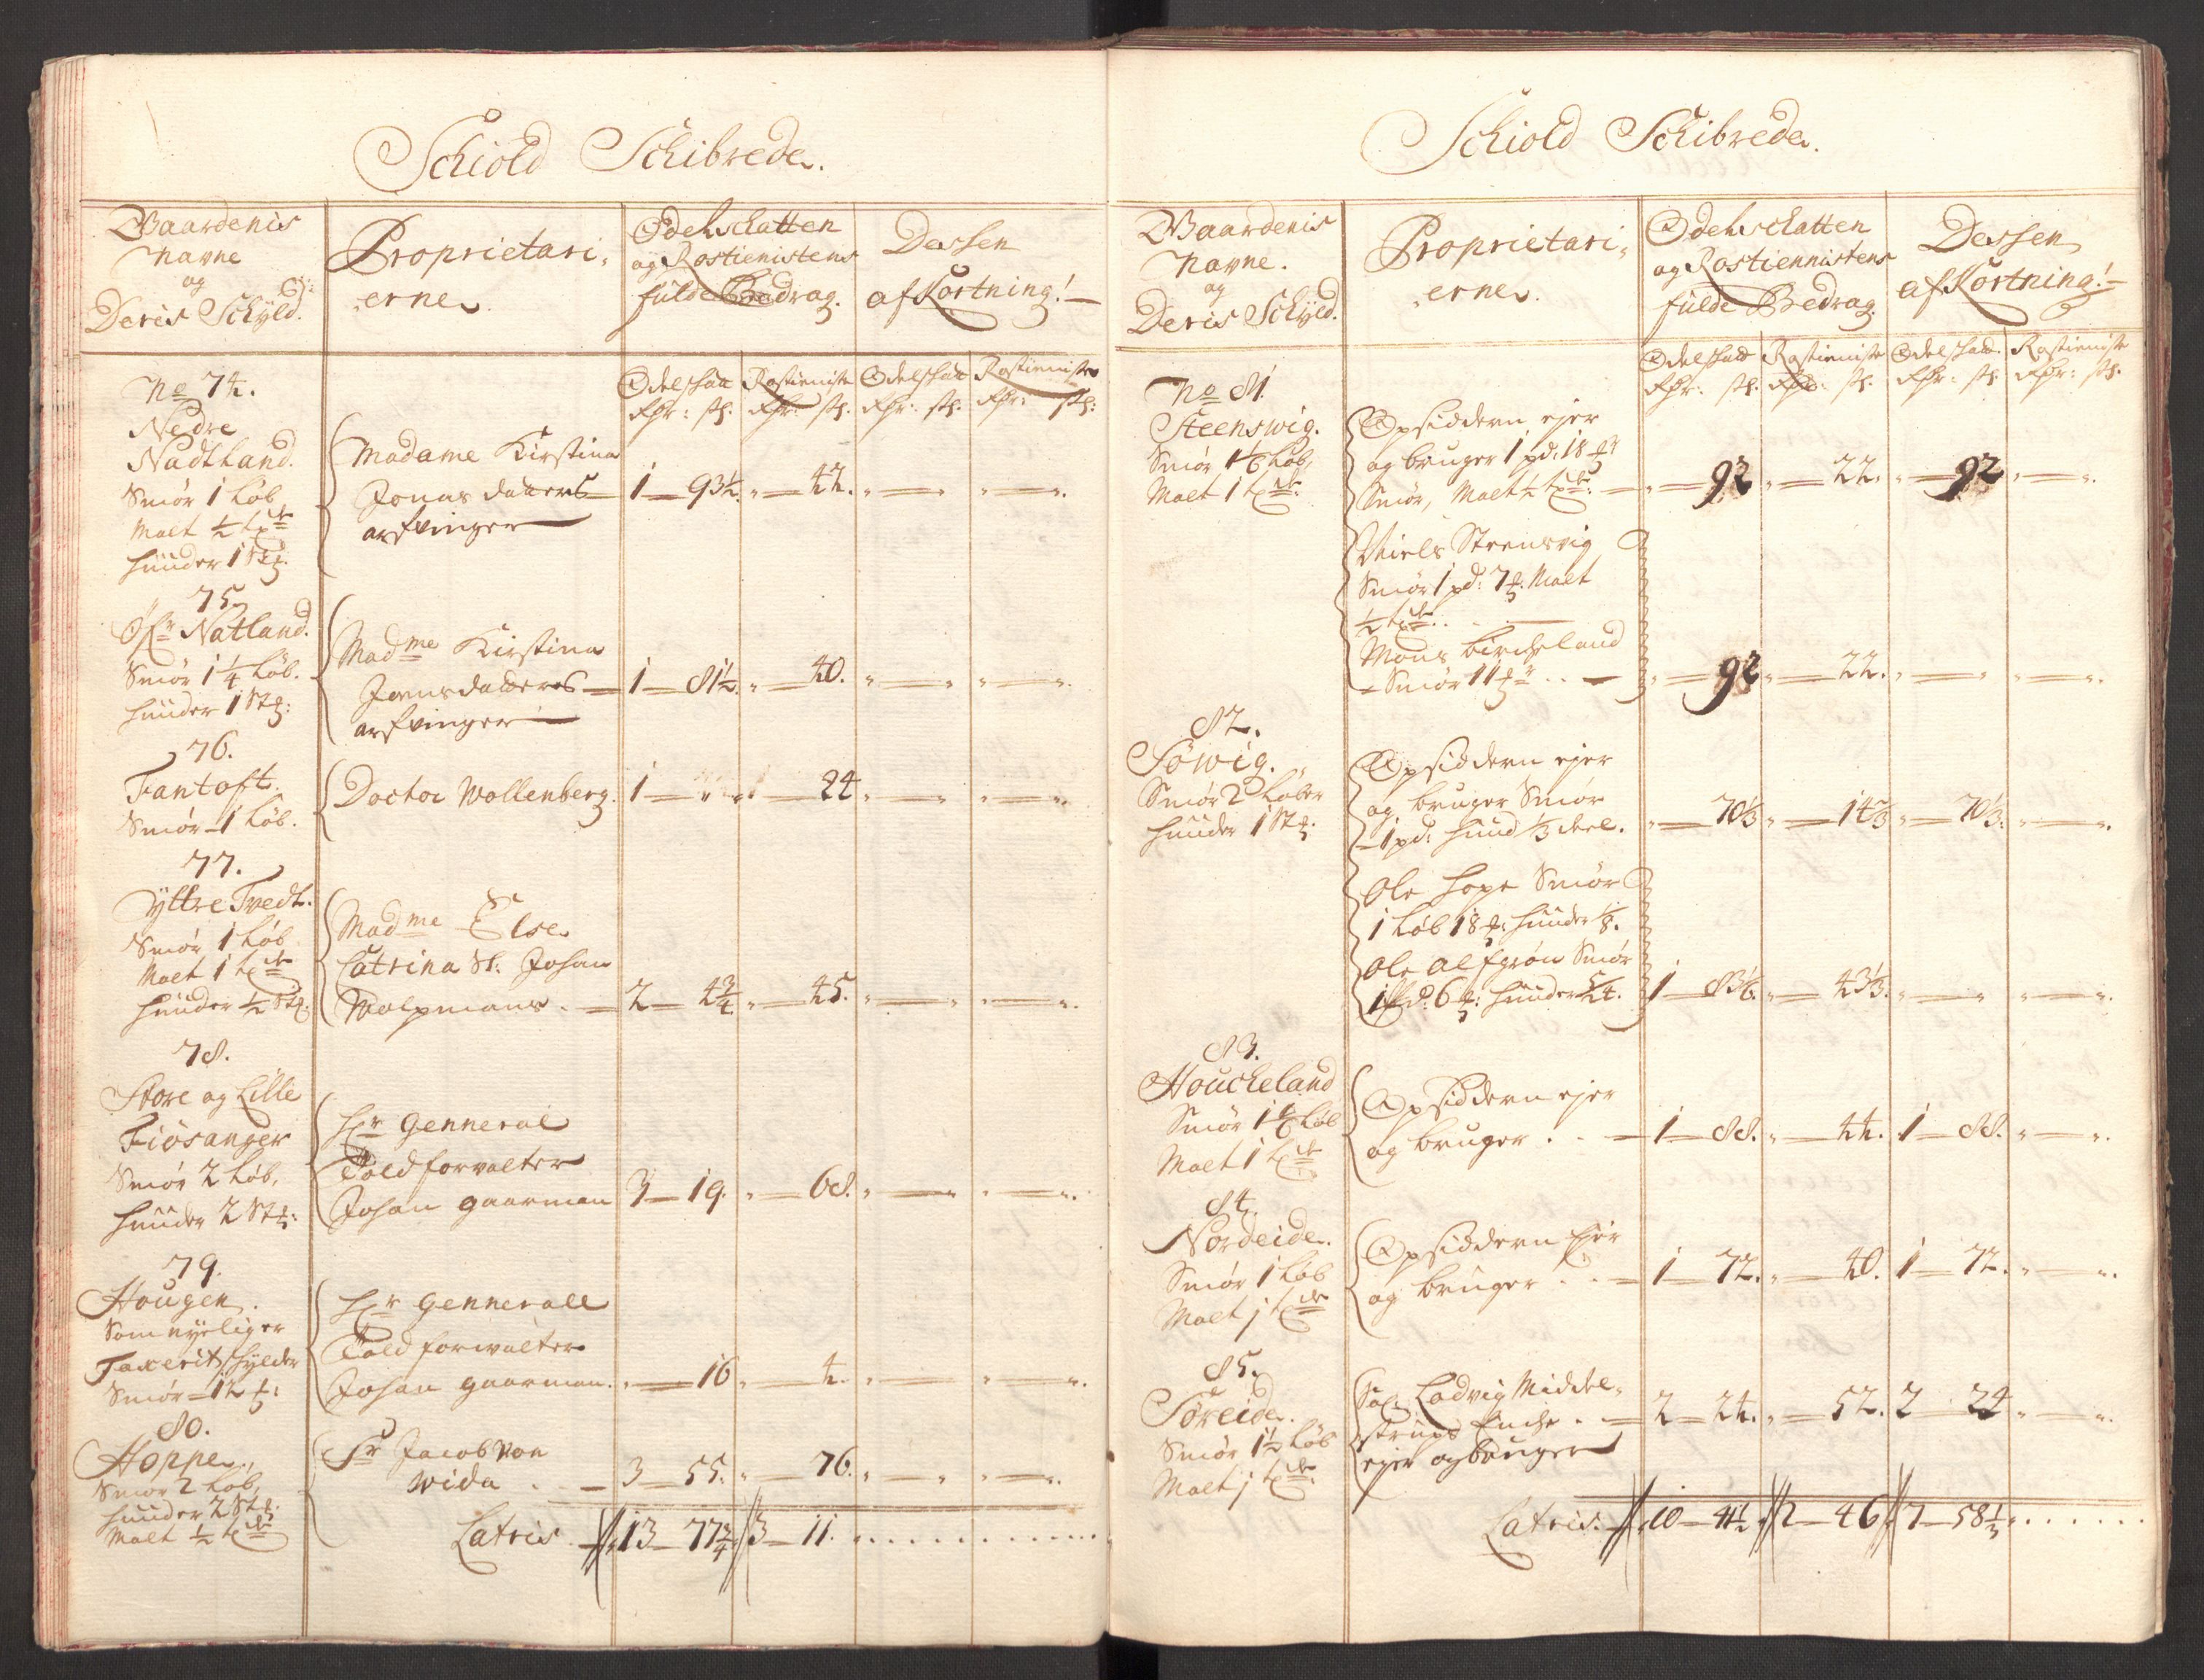 Schiold Schibrede.
Gaardenis
Navne
og
Deris Schyld.
Proprietari-
erne.
Odelschatten
og Rostienistens
fulde Bedrag.
Dessen
afKortning!
Odelschatt Rostieniste Odelschatt Rostieniste
Rdr: sk. Rdr: sk. Rdr: sk. Rdr: sk:
No 74.
Nedre
Nadtland.
Smör 1 Löb
Malt ½ td
huuder 1 St
Madame Kirstina
Jonas datters
arfvinger
1 - 93½. " - 42.
75.
Øfr Natland.
Smör 1¼ Löb.
huuder 1 St
Madme Kirstina
Jonsdatters
arfvinger
1 - 81½. " - 40.
76.
Fantoft.
Smör 1 Löb.
Doctor Wollenberg.
1 - " - 24
77.
Yttre Tvedt.
Smör 1 Löb
Malt 1 td
huuder ½ St
Madme Else
Catrina Sl. Johan
Wolpmans.
2 - 4¾ " - 45.
78.
Store og Lille
Fiösanger
Smör 2 Löb,
huuder 2 St
Hr Genneral
Toldforvalter
Johan gaarman
3 - 19. " - 68.
79.
Hougen.
Som nyelig er
Taxerit schylder
Smör - 12
Hr Gennerall
Told forwalter
Johan gaarman.
" - 16 " - 4.
80.
Hoppe.
Smör 2 Löb,
huuder 2 St
Malt ½ td
Sr Jacob von
Wida
3 - 55. " - 76.
Lateris. 13 - 77¾ 3 - 11.
Schiold Schibrede.
Gaardenis
Navne.
og
Deris Schyld.
Proprietari-
erne.
Odelschatten
og Rostiennistens
fulde Bedrag.
Dessen
afKortning!
Odelschatt Rostieniste Odelschatt Rostieniste
Rdr: sk. Rdr: sk. Rdr: sk. Rdr: sk.
No 81.
Steenswig.
Smör 1⅙ Löb,
Malt 1 td
Opsiddern ejer
og bruger 1 pd: 18
Smör, Malt ½ td
" - 92 " - 22. " - 92
Niels Steensvig
Smör 1 pd: 7 Malt
½ td
Mons birkeland
Smör 11
" - 92 " - 22.
82.
Söwig.
Smör 2 Löber
huuder 1 St
Opsiddern ejer
og bruger Smör
1 pd: huud ⅓ deel.
" - 70⅓ " - 14⅔ " - 70⅓.
Ole Hope Smör
1 Löb 18 huuder
Ole Alfgrøn Smör
1 pd: 6 huuder 5/24.
1 - 83⅙. " - 43⅓.
83.
Houckeland
Smör 1⅙ Löb
Malt 1 td
Opsiddern ejer
og bruger
1 - 88. " - 44. 1 - 88.
84.
Nordeide.
Smör 1 Löb
Malt j td
Opsiddern Ejer
og bruger
1 - 72. " - 40. 1 - 72.
85.
Söreide.
Smör 1½ Löb
Malt j td
Sal. Ladvig Middel-
strups Encke
ejer og bruger
2 - 24. " - 52. 2 24
Lateris. 10 - 41½ 2 - 46 7 - 58⅓